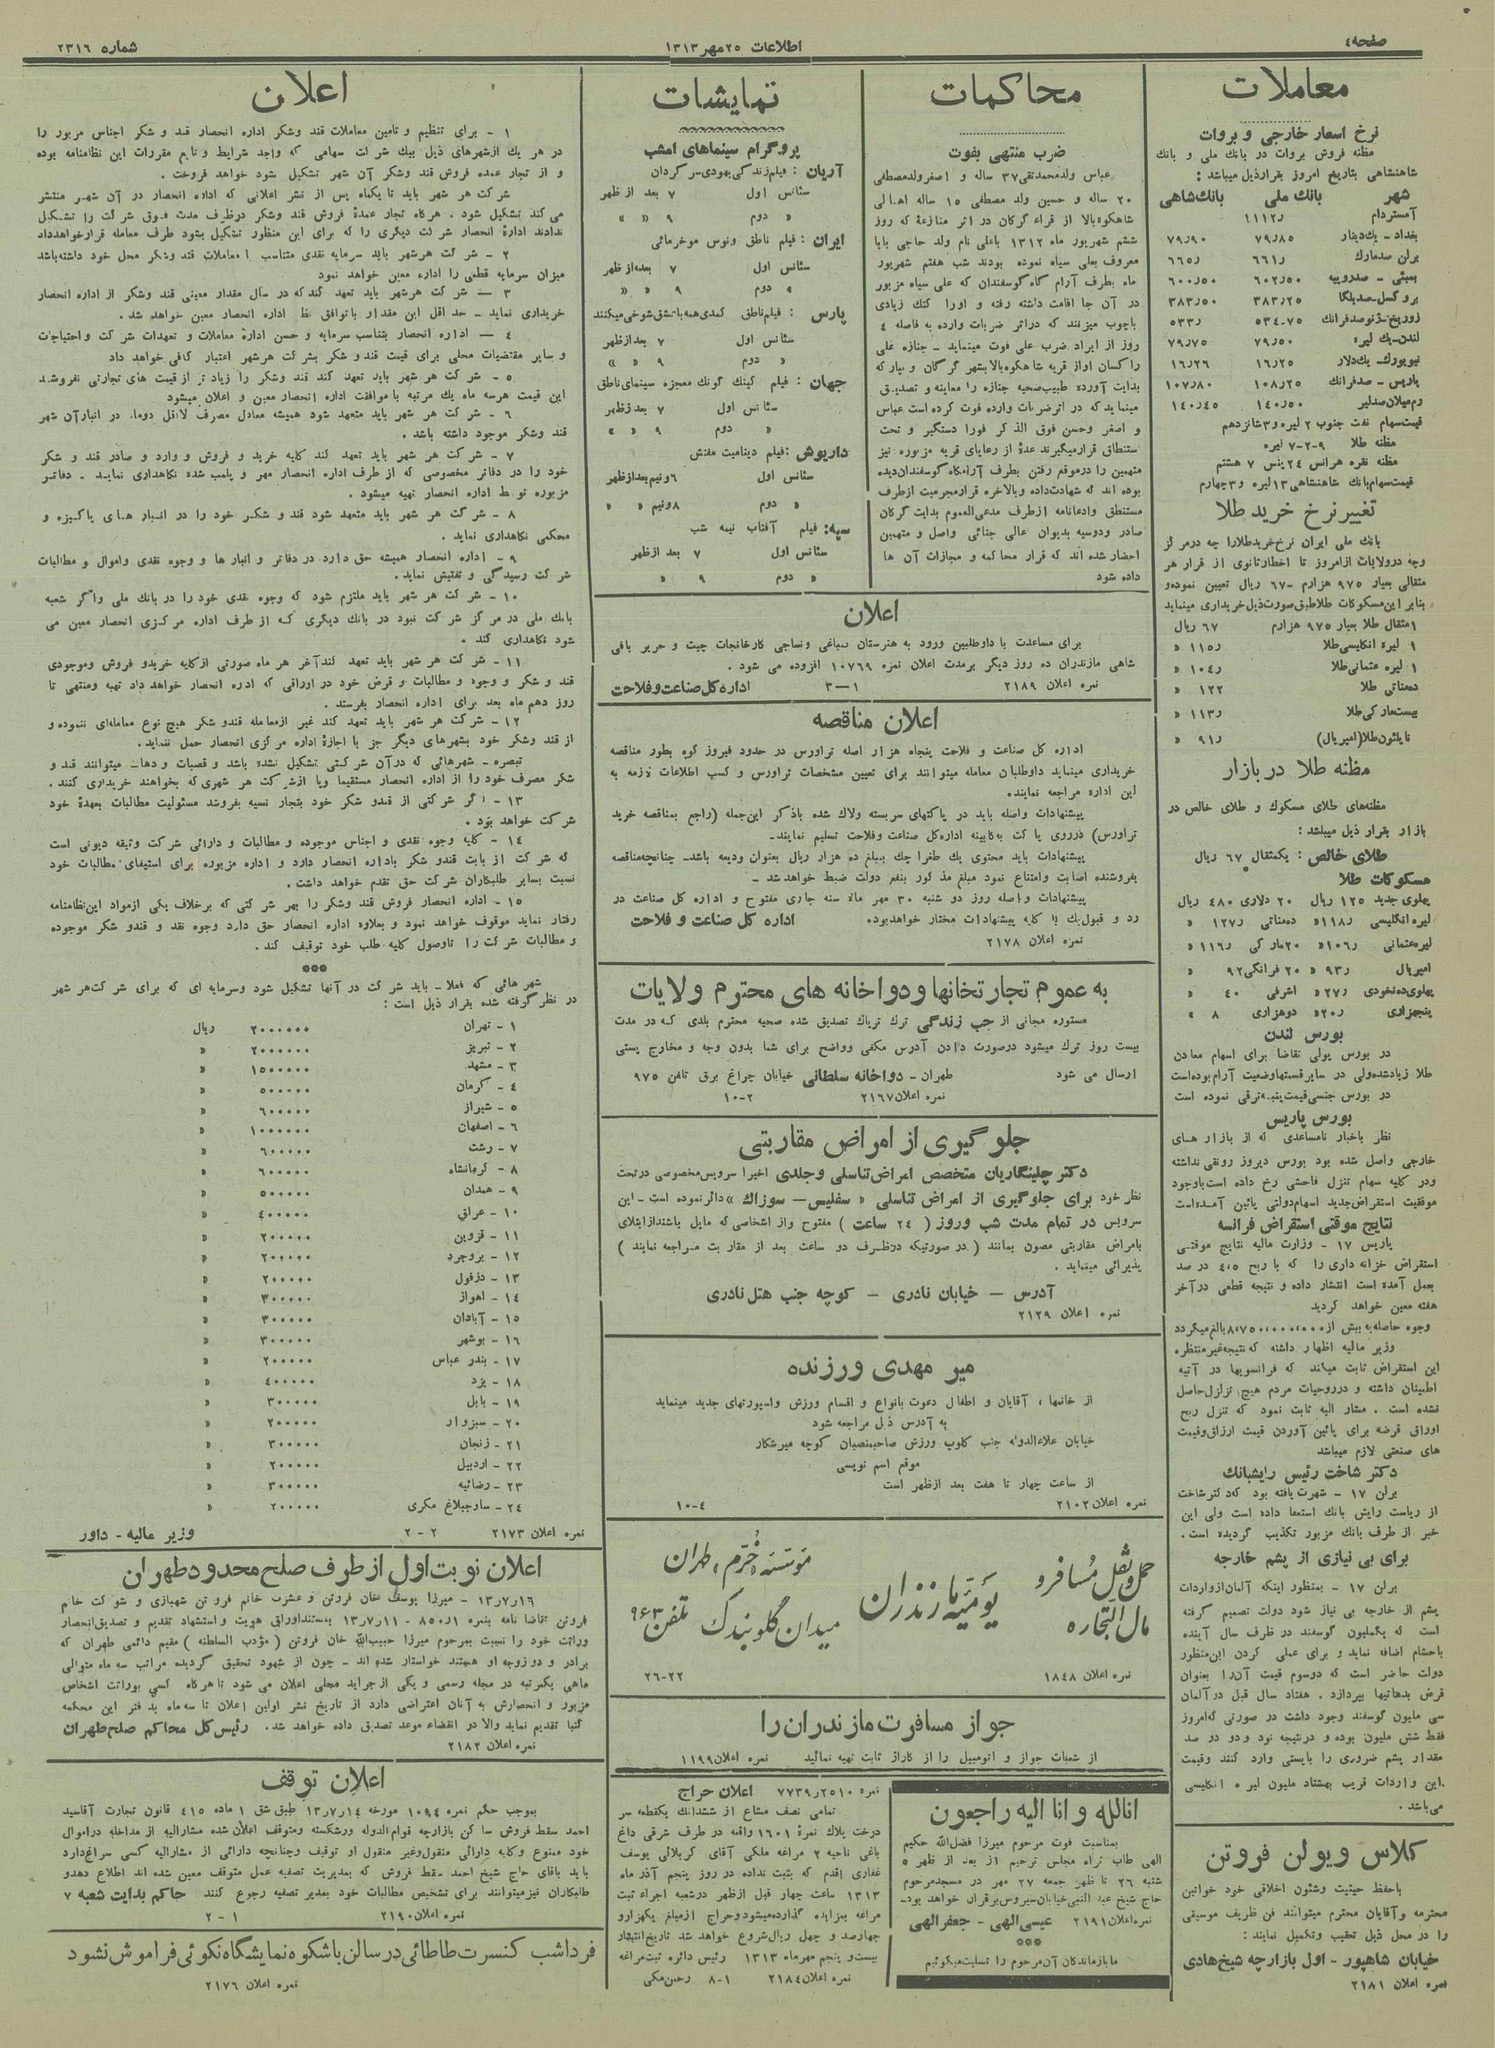 صفحه ٤
اطلاعات ٢٥ مهر ١٣١٣
شماره ٢٣١٦
معاملات
نرخ اسعار خارجی و بروات
مظنه فروش بروات در بانك ملی و بانك
شاهنشاهی بتاریخ امروز بقرار ذیل میباشد :
شهر بانك ملی بانك شاهی
آمستردام ١١١٢ر
بغداد - یك دینار ٧٩ر٨٥ ٧٩ر٩٠
برلن صدمارك ٦٦١ر ٦٦٥ر
بمبئی - صدروپیه ٦٠٢ر٥٠ ٦٠٠ر٥٠
بروکسل - صدبلگا ٣٨٣ر٢٥ ٣٨٣ر٥٠
زوریخ - ژنو صدفرانك ٥٣٤٫٧٥ ٥٣٣ر
لندن - یك لیره ٧٩ر٥٠ ٧٩ر٧٥
نیویورك - یك دلار ١٦ر٢٥ ١٦ر٢٦
پاریس - صدفرانك ١٠٨ر٢٥ ١٠٧ر٨٠
رم میلان صدلیر ١٤٠ر٥٠ ١٤٠ر٤٥
قیمت سهام نفت جنوب ٢ لیره و ٣ شانزدهم
مظنه طلا ٩-٢-٧ لیره
مظنه نقره هرانس ٢٤ پنس ٧ هشتم
قیمت سهام بانك شاهنشاهی ١٣ لیره و ٣ چهارم
تغییر نرخ خرید طلا
بانك ملی ایران نرخ خرید طلا را چه در مرکز
وچه در ولایات از امروز تا اخطار ثانوی از قرار هر
مثقالی بعیار ٩٧٥ هزارم -٦٧ ریال تعیین نموده و
بنابر این مسکوکات طلا طبق صورت ذیل خریداری مینماید
١ مثقال طلا بعیار ٩٧٥ هزارم ٦٧ ریال
١ لیره انگلیسی طلا ١١٥ر «
١ لیره عثمانی طلا ١٠٤ر «
ده مناتی طلا ١٢٢ «
بیست مارکی طلا ١١٣ر «
ناپلئون طلا (امپریال) ٩١ر «
مظنه طلا در بازار
مظنه های طلای مسکوك و طلای خالص در
بازار بقرار ذیل میباشد :
طلای خالص : یکمثقال ٦٧ ریال
مسکوکات طلا
پهلوی جدید ١٢٥ ریال ٢٠ دلاری ٤٨٠ ریال
لیره انگلیسی ١١٨ر « ده مناتی ١٢٧ر «
لیره عثمانی ١٠٦ر « ٢٠ مارکی ١١٦ر «
امپریال ٩٣ر « ٢٠ فرانکی ٩٢ «
پهلوی ده نخودی ٢٧ر « اشرفی ٤٠ «
پنجهزاری ٢٠ر « دوهزاری ٨ «
بورس لندن
در بورس پولی تقاضا برای اسهام معادن
طلا زیاد شده ولی در سایر قسمتها وضعیت آرام بوده است
در بورس جنسی قیمت پنبه ترقی نموده است
بورس پاریس
نظر باخبار نامساعدی که از بازار های
خارجی واصل شده بود بورس دیروز رونقی نداشته
ودر کلیه سهام تنزل فاحشی رخ داده است باوجود
موفقیت استقراض جدید اسهام دولتی پائین آمده است
نتایج موقتی استقراض فرانسه
پاریس ١٧ - وزارت مالیه نتایج موقتی
استقراض خزانه داری را که با ربح ٤٫٥ در صد
بعمل آمده است انتشار داده و نتیجه قطعی در آخر
هفته معین خواهد گردید
وجوه حاصله به بیش از ٨٬٧٥٠٬٠٠٠٬٠٠٠ بالغ میگردد
وزیر مالیه اظهار داشته که نتیجه غیر منتظره
این استقراض ثابت میکند که فرانسویها در آتیه
اطمینان داشته و در روحیات مردم هیچ تزلزل حاصل
نشده است . مشار الیه ثابت نمود که تنزل ربح
اوراق قرضه برای پائین آوردن قیمت ارزاق وقیمت
های صنعتی لازم میباشد
دکتر شاخت رئیس رایشبانك
برلن ١٧ - شهرت یافته بود که دکتر شاخت
از ریاست رایش بانك استعفا داده است ولی این
خبر از طرف بانك مزبور تکذیب گردیده است .
برای بی نیازی از پشم خارجه
برلن ١٧ - بمنظور اینکه آلمان از واردات
پشم از خارجه بی نیاز شود دولت تصمیم گرفته
است که یکملیون گوسفند در ظرف سال آینده
باحشام اضافه نماید و برای عملی کردن این منظور
دولت حاضر است که دوسوم قیمت آن را بعنوان
قرض بدهاتیها بپردازد . هفتاد سال قبل در آلمان
سی ملیون گوسفند وجود داشت در صورتی که امروز
فقط شش ملیون بوده و در نتیجه نود و دو صد
مقدار پشم ضروری را بایستی وارد کنند وقیمت
این واردات قریب بهشتاد ملیون لیره انگلیسی
می باشد .
کلاس ویولن فروتن
باحفظ حیثیت وشئون اخلاقی خود خواتین
محترمه و آقایان محترم میتوانند فن ظریف موسیقی
را در محل ذیل تعقیب وتکمیل نمایند :
خیابان شاهپور - اول بازارچه شیخ هادی
نمره اعلان ٢١٨١
محاکمات
ضرب منتهی بفوت
عباس ولد محمدتقی ٣٧ ساله و اصغر ولد مصطفی
٢٠ ساله و حسین ولد مصطفی ١٥ ساله اهالی
شاهکوه بالا از قراء گرگان در اثر منازعه که روز
ششم شهریور ماه ١٣١٢ با علی نام ولد حاجی بابا
معروف بعلی سیاه نموده بودند شب هفتم شهریور
ماه بطرف آرام گاه گوسفندان که علی سیاه مزبور
در آن جا اقامت داشته رفته و اورا کتك زیادی
باچوب میزنند که دراثر ضربات وارده به فاصله ٤
روز از ایراد ضرب علی فوت مینماید - جنازه علی
را کسان او از قریه شاهکوه بالا بشهر گرگان و بپارکه
بدایت آورده طبیب صحیه جنازه را معاینه و تصدیق
مینماید که در اثر ضربات وارده فوت کرده است عباس
و اصغر و حسن فوق الذکر فورا دستگیر و تحت
استنطاق قرار میگیرند عدهٔ از رعایای قریه مزبوره نیز
متهمین را در موقع رفتن بطرف آرامگاه گوسفندان دیده
بوده اند که شهادت داده وبالاخره قرار مجرمیت از طرف
مستنطق وادعانامه از طرف مدعی العموم بدایت گرگان
صادر ودوسیه بدیوان عالی جنائی واصل و متهمین
احضار شده اند که قرار محاکمه و مجازات آن ها
داده شود
نمایشات
پروگرام سینماهای امشب
آریان : فیلم زندگی یهودی سرگردان
سئانس اول ٧ بعد از ظهر
« دوم ٩ « «
ایران : فیلم ناطق ونوس موخرمائی
سئانس اول ٧ بعد از ظهر
« دوم ٩ « «
پارس : فیلم ناطق کمدی همه باعشق شوخی میکنند
سئانس اول ٧ بعد از ظهر
« دوم ٩ « «
جهان : فیلم کینك کونك معجزه سینمای ناطق
سئانس اول ٧ بعد از ظهر
« دوم ٩ « «
داریوش : فیلم دینامیت مفتش
سئانس اول ٦ ونیم بعد از ظهر
« دوم ٨ ونیم « «
سپه : فیلم آفتاب نیمه شب
سئانس اول ٧ بعد از ظهر
« دوم ٩ «
اعلان
برای مساعدت با داوطلبین ورود به هنرستان صباغی ونساجی کارخانجات چیت و حریر بافی
شاهی مازندران ده روز دیگر بر مدت اعلان نمره ١٠٧٦٩ افزوده می شود .
نمره اعلان ٢١٨٩ ١—٣ اداره کل صناعت و فلاحت
اعلان مناقصه
اداره کل صناعت و فلاحت پنجاه هزار اصله تراورس در حدود فیروز کوه بطور مناقصه
خریداری مینماید داوطلبان معامله میتوانند برای تعیین مشخصات تراورس و کسب اطلاعات لازمه به
این اداره مراجعه نمایند.
پیشنهادات واصله باید در پاکتهای سربسته ولاك شده باذکر این جمله (راجع بمناقصه خرید
تراورس) در روی پاکت به کابینه اداره کل صناعت وفلاحت تسلیم نمایند.
پیشنهادات باید محتوی یك طغرا چك بمبلغ ده هزار ریال بعنوان ودیعه باشد. چنانچه مناقصه
بفروشنده اصابت وامتناع نمود مبلغ مذکور بنفع دولت ضبط خواهد شد -
پیشنهادات واصله روز دو شنبه ٣٠ مهر ماه سنه جاری مفتوح و اداره کل صناعت در
رد و قبول یك یا کلیه پیشنهادات مختار خواهد بود. اداره کل صناعت و فلاحت
نمره اعلان ٢١٧٨
به عموم تجارتخانها و دواخانه های محترم ولایات
مستوره مجانی از حب زندگی ترك تریاك تصدیق شده صحیه محترم بلدی که در مدت
بیست روز ترك میشود در صورت دادن آدرس مکفی وواضح برای شما بدون وجه و مخارج پستی
ارسال می شود طهران - دواخانه سلطانی خیابان چراغ برق تلفن ٩٧٥
نمره اعلان ٢١٦٧ ٢-١٠
جلوگیری از امراض مقاربتی
دکتر چلینگاریان متخصص امراض تناسلی و جلدی اخیرا سرویس مخصوصی درتحت
نظر خود برای جلوگیری از امراض تناسلی « سفلیس — سوزاك » دائر نموده است - این
سرویس در تمام مدت شب وروز ( ٢٤ ساعت ) مفتوح واز اشخاصی که مایل باشند از ابتلای
بامراض مقاربتی مصون بمانند ( در صورتیکه در ظرف دو ساعت بعد از مقاربت مراجعه نمایند )
پذیرائی مینماید .
آدرس — خیابان نادری — کوچه جنب هتل نادری
نمره اعلان ٢١٢٩
میر مهدی ورزنده
از خانمها ، آقایان و اطفال دعوت بانواع و اقسام ورزش واسپورتهای جدید مینماید
به آدرس ذیل مراجعه شود
خیابان علاءالدوله جنب کلوب ورزش صاحبمنصبان کوچه میرشکار
موقع اسم نویسی
از ساعت چهار تا هفت بعد از ظهر است
نمره اعلان ٢١٠٢ ٤-١٠
حمل و نقل مسافر و
مال التجاره
یومیه مازندران
موسسه محترم ، طهران
میدان گلوبندك تلفن ٩٦٣
نمره اعلان ١٨٤٨ ٢٢-٢٦
جواز مسافرت مازندران را
از شعبات جواز و اتومبیل را از کاراژ ثابت تهیه نمائید نمره اعلان ١١٩٩
انالله و انا الیه راجعون
بمناسبت فوت مرحوم میرزا فضل الله حکیم
الهی طاب ثراه مجلس ترحیم از بعد از ظهر ٥
شنبه ٢٦ تا ظهر جمعه ٢٧ مهر در مسجد مرحوم
حاج شیخ عبد النبی خیابان سیروس برقرار خواهد بود.
نمره اعلان ٢١٩١ عیسی الهی - جعفر الهی
***
ما بازماندگان آن مرحوم را تسلیت میگوئیم
نمره ٢٥١٠ر٧٧٣٩ اعلان حراج
تمامی نصف مشاع از ششدانك یکقطعه سر
درخت پلاك نمرهٔ ١٦٠١ واقعه در طرف شرقی داغ
باغی ناحیه ٢ مراغه ملکی آقای کربلائی یوسف
غفاری اقدم که بثبت نداده در روز پنجم آذر ماه
١٣١٣ ساعت چهار قبل از ظهر در شعبه اجراء ثبت
مراغه بمزایده گذارده میشود وحراج از مبلغ یکهزار و
چهارصد و چهل ریال شروع خواهد شد تاریخ انتشار
بیست و پنجم مهر ماه ١٣١٣ رئیس دائره ثبت مراغه
نمره اعلان ٢١٨٤ ١-٨ رحمن مکی
اعلان
١ - برای تنظیم و تامین معاملات قند وشکر اداره انحصار قند و شکر اجناس مزبور را
در هر یك از شهرهای ذیل بیك شرکت سهامی که واجد شرایط و تابع مقررات این نظامنامه بوده
و از تجار عمده فروش قند وشکر آن شهر تشکیل شود خواهد فروخت .
شرکت هر شهر باید تا یکماه پس از نشر اعلانی که اداره انحصار در آن شهر منتشر
می کند تشکیل شود . هرگاه تجار عمدهٔ فروش قند وشکر در ظرف مدت فوق شرکت را تشکیل
ندادند ادارهٔ انحصار شرکت دیگری را که برای این منظور تشکیل بشود طرف معامله قرار خواهد داد
٢ - شرکت هر شهر باید سرمایه نقدی متناسب با معاملات قند وشکر محل خود داشته باشد
میزان سرمایه قطعی را اداره معین خواهد نمود
٣ — شرکت هر شهر باید تعهد کند که در سال مقدار معینی قند وشکر از اداره انحصار
خریداری نماید - حد اقل این مقدار با توافق نظر اداره انحصار معین خواهد شد .
٤ — اداره انحصار بتناسب سرمایه و حسن اداره معاملات و تعهدات شرکت و احتیاجات
و سایر مقتضیات محلی برای قیمت قند و شکر بشرکت هر شهر اعتبار کافی خواهد داد
٥ - شرکت هر شهر باید تعهد کند قند وشکر را زیاد تر از قیمت های تجارتی نفروشد
این قیمت هر سه ماه یك مرتبه با موافقت اداره انحصار معین و اعلان میشود
٦ - شرکت هر شهر باید متعهد شود همیشه معادل مصرف لااقل دوماه در انبار آن شهر
قند وشکر موجود داشته باشد .
٧ - شرکت هر شهر باید تعهد کند کلیه خرید و فروش و وارد و صادر قند و شکر
خود را در دفاتر مخصوصی که از طرف اداره انحصار مهر و پلمب شده نگاهداری نماید - دفاتر
مزبوره توسط اداره انحصار تهیه میشود .
٨ - شرکت هر شهر باید متعهد شود قند و شکر خود را در انبار های پاکیزه و
محکمی نگاهداری نماید .
٩ - اداره انحصار همیشه حق دارد در دفاتر و انبار ها و وجوه نقدی واموال و مطالبات
شرکت رسیدگی و تفتیش نماید .
١٠ - شرکت هر شهر باید ملتزم شود که وجوه نقدی خود را در بانك ملی واگر شعبه
بانك ملی در مرکز شرکت نبود در بانك دیگری که از طرف اداره مرکزی انحصار معین می
شود نگاهداری کند .
١١ - شرکت هر شهر باید تعهد کند آخر هر ماه صورتی از کلیه خرید و فروش وموجودی
قند و شکر و وجوه و مطالبات و قرض خود در اوراقی که اداره انحصار خواهد داد تهیه ومنتهی تا
روز دهم ماه بعد برای اداره انحصار بفرستد .
١٢ - شرکت هر شهر باید تعهد کند غیر از معامله قند و شکر هیچ نوع معامله ای ننموده و
از قند وشکر خود بشهرهای دیگر جز با اجازهٔ اداره مرکزی انحصار حمل ننماید .
تبصره - شهرهائی که در آن شرکتی تشکیل نشده باشد و قصبات و دهات میتوانند قند و
شکر مصرف خود را از اداره انحصار مستقیما ویا از شرکت هر شهری که بخواهند خریداری کنند .
١٣ - اگر شرکتی از قند و شکر خود بتجار نسیه بفروشد مسئولیت مطالبات بعهدهٔ خود
شرکت خواهد بود .
١٤ - کلیه وجوه نقدی و اجناس موجوده و مطالبات و دارائی شرکت وثیقه دیونی است
که شرکت از بابت قند و شکر باداره انحصار دارد و اداره مزبوره برای استیفای مطالبات خود
نسبت بسایر طلبکاران شرکت حق تقدم خواهد داشت .
١٥ - اداره انحصار فروش قند وشکر را بهر شرکتی که برخلاف یکی از مواد این نظامنامه
رفتار نماید موقوف خواهد نمود و بعلاوه اداره انحصار حق دارد وجوه نقد و قند و شکر موجوده
و مطالبات شرکت را تا وصول کلیه طلب خود توقیف کند .
***
شهر هائی که فعلا باید شرکت در آنها تشکیل شود وسرمایه ای که برای شرکت هر شهر
در نظر گرفته شده بقرار ذیل است :
١ - تهران ٢٠٠٠٠٠٠ ریال
٢ - تبریز ٢٠٠٠٠٠٠ «
٣ - مشهد ١٥٠٠٠٠٠ «
٤ - کرمان ٥٠٠٠٠٠ «
٥ - شیراز ٦٠٠٠٠٠ «
٦ - اصفهان ١٠٠٠٠٠٠ «
٧ - رشت ٦٠٠٠٠٠ «
٨ - کرمانشاه ٦٠٠٠٠٠ «
٩ - همدان ٥٠٠٠٠٠ «
١٠ - عراق ٤٠٠٠٠٠ «
١١ - قزوین ٢٠٠٠٠٠ «
١٢ - بروجرد ٢٠٠٠٠٠ «
١٣ - دزفول ٢٠٠٠٠٠ «
١٤ - اهواز ٣٠٠٠٠٠ «
١٥ - آبادان ٣٠٠٠٠٠ «
١٦ - بوشهر ٣٠٠٠٠٠ «
١٧ - بندر عباس ٢٠٠٠٠٠ «
١٨ - یزد ٤٠٠٠٠٠ «
١٩ - بابل ٣٠٠٠٠٠ «
٢٠ - سبزوار ٢٠٠٠٠٠ «
٢١ - زنجان ٣٠٠٠٠٠ «
٢٢ - اردبیل ٢٠٠٠٠٠ «
٢٣ - رضائیه ٣٠٠٠٠٠ «
٢٤ - ساوجبلاغ مکری ٢٠٠٠٠٠ «
نمره اعلان ٢١٧٣ ٢ - ٢ وزیر مالیه - داور
اعلان نوبت اول از طرف صلح محدود طهران
١٣٫٧٫١٦ - میرزا یوسف خان فروتن و عشرت خانم فروتن شهبازی و شوکت خانم
فروتن تقاضا نامه بنمره ٨٥٠١ - ١٣٫٧٫١١ بمستند اوراق هویت و استشهاد تقدیم و تصدیق انحصار
وراثت خود را نسبت بمرحوم میرزا حبیب الله خان فروتن (مؤدب السلطنه) مقیم دائمی طهران که
برادر و دو زوجه او هستند خواستار شده اند - چون از شهود تحقیق گردیده مراتب سه ماه متوالی
ماهی یکمرتبه در مجله رسمی و یکی از جراید محلی اعلان می شود تا هرگاه کسی بوراثت اشخاص
مزبور و انحصارش به آنان اعتراضی دارد از تاریخ نشر اولین اعلان تا سه ماه بدفتر این محکمه
کتبا تقدیم نماید والا در انقضاء موعد تصدیق داده خواهد شد. رئیس کل محاکم صلح طهران
نمره اعلان ٢١٨٢
اعلان توقف
بموجب حکم نمره ١٠٩٤ مورخه ١٣٫٧٫١٤ طبق شق ١ ماده ٤١٥ قانون تجارت آقاسید
احمد سقط فروش ساکن بازارچه قوام الدوله ورشکسته ومتوقف اعلان شده مشارالیه از مداخله در اموال
خود ممنوع وکلیه دارائی منقول وغیر منقول او توقیف وچنانچه دارائی از مشارالیه کسی سراغ دارد
باید باقای حاج شیخ احمد سقط فروش که بمدیریت تصفیه عمل متوقف معین شده اند اطلاع دهد و
طلبکاران نیز میتوانند برای تشخیص مطالبات خود بمدیر تصفیه رجوع کنند حاکم بدایت شعبه ٧
نمره اعلان ٢١٩٠ ١ - ٢
فرداشب کنسرت طاطائی در سالن باشکوه نمایشگاه نکوئی فراموش نشود
نمره اعلان ٢١٧٦